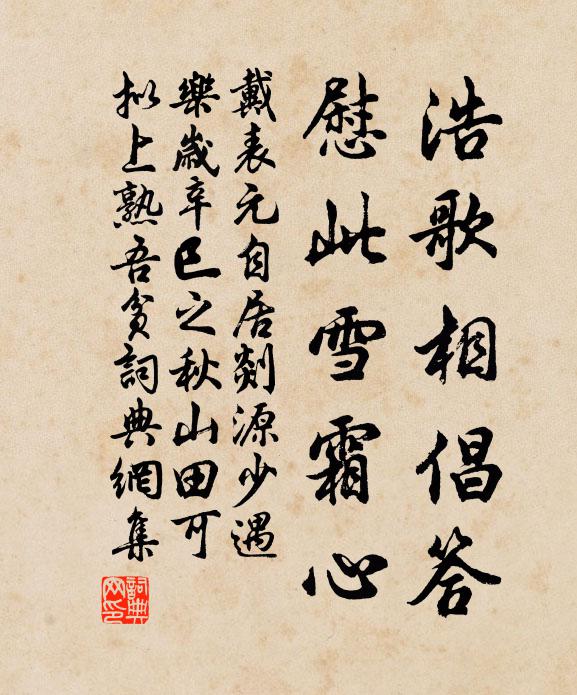 浩歌相倡答
慰此雪霜心
戴表元自居剡源少遇
樂歲辛巳之秋山田可
擬上熟吾貧詞典網集
詞典网印